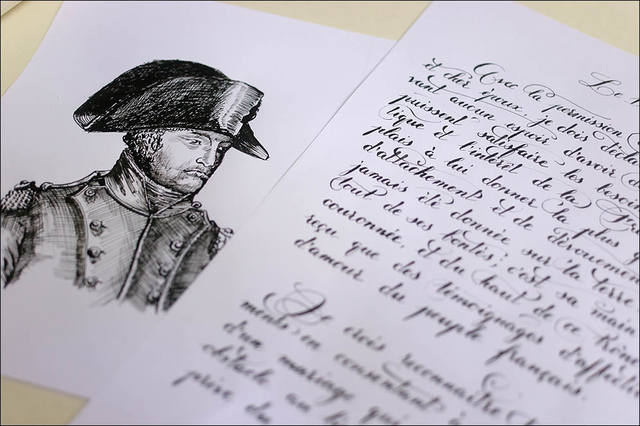 Le
Avec la permission
et cher époux, je dois déclar
vant aucun espoir d'avoir d
puissent satisfaire les besoi
que et l'intérêt de la
plais à lui donner la plus g
d'attachement et de dévouemen
jamais été donnée sur la terre
tout de ses bontés; c'est sa main
couronnée, et du haut de ce trône
reçu que des témoignages d'affecti
d'amour du peuple français.
Je crois reconnaître
ments en consentant à
d'un mariage qui
obstacle au b
prive du